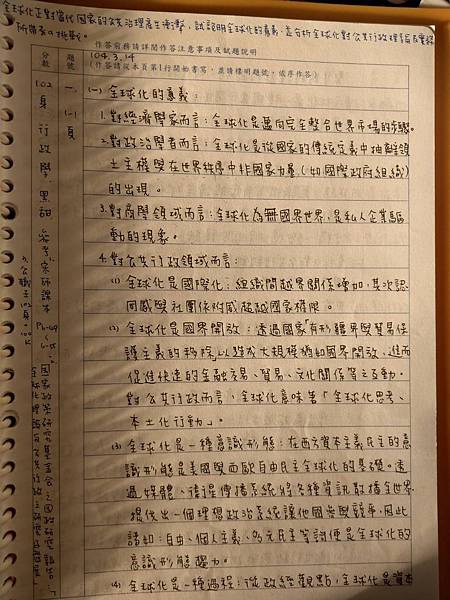 全球化正對當代國家的公共治理產生衝擊，試說明全球化的意義，並分析全球化對公共行政理論及實務
所帶來的挑戰。
作答前務請詳閱作答注意事項及試題說明
分數
題號
104.3.14
（作答請從本頁第1行開始書寫，並請標明題號，依序作答）
102
身
行
政
學
一、
1-1
頁
(一) 全球化的意義：
1. 對經濟學家而言：全球化是邁向完全整合世界市場的步驟。
2. 對政治學者而言：全球化是從國家的傳統定義中抽離領
土主權與在世界秩序中非國家力量(如國際政府組織)
的出現。
3. 對商學領域而言：全球化為無國界世界，是私人企業驅
動的現象。
4. 對公共行政領域而言：
(1) 全球化是國際化：組織間越界關係增加，其次認
同感與社團依附感超越國家權限。
(2) 全球化是國界開放：透過國家有形疆界與貿易保
護主義的移除，以造成大規模的如國界開放，進而
促進快速的金融交易、貿易、文化關係等之互動。
對公共行政而言，全球化意味著「全球化思考、
本土化行動」。
(3) 全球化是一種意識形態：在西方資本主義民主的意
識形態是美國與西歐自由民主全球化的基礎。透
過媒體、後退傳播系統將各種資訊散播全世界
提供出一個理想政治系統讓他國參與競爭，因此
諸如：自由、個人主義、多元民主等詞便是全球化的
意識形態驅力。
(4) 全球化是一種過程：從政經觀點，全球化是資本